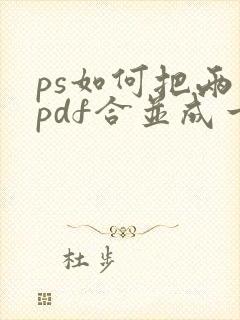 ps如何把两
pdf合并成一
杜步